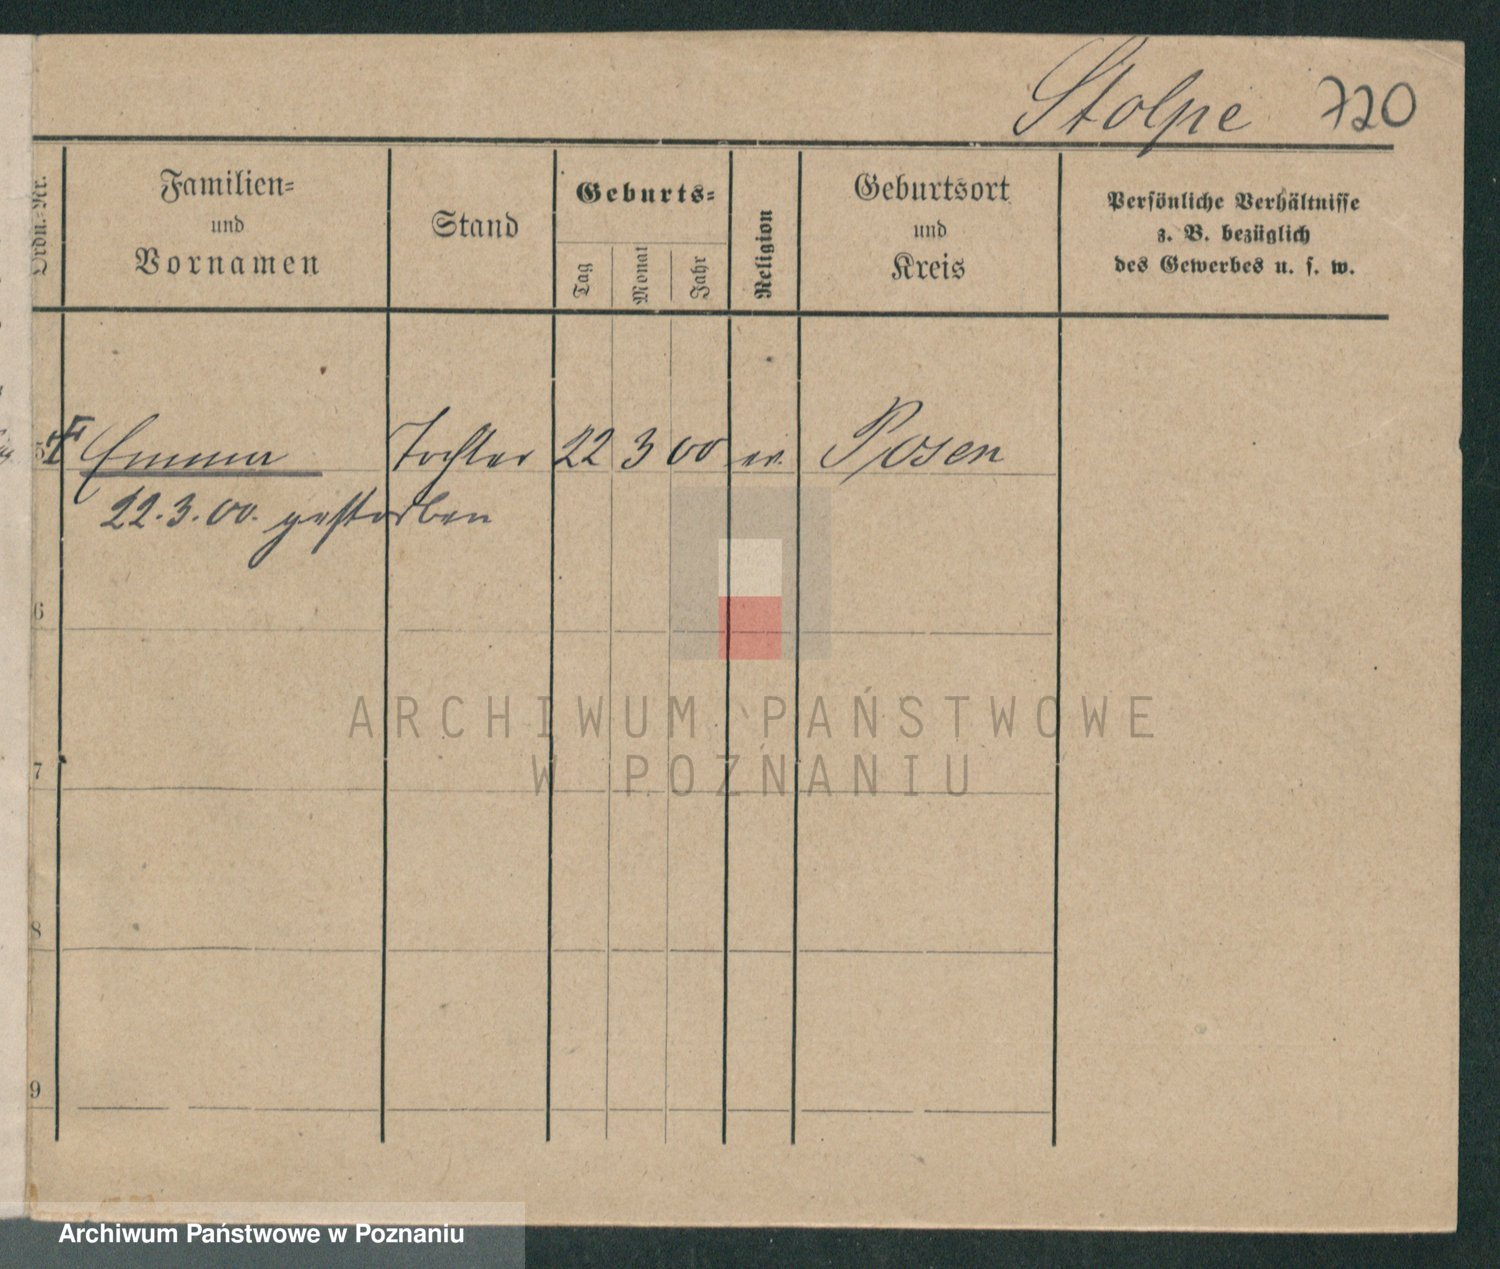 Stolpe 720
Ordn.-Nr.
Familien-
und
Vornamen
Stand
Geburts-
Tag
Monat
Jahr
Religion
Geburtsort
und
Kreis
Persönliche Verhältnisse
z. B. bezüglich
des Gewerbes u. s. w.
5 Emma Tochter 22 3 00 ev. Posen
22.3.00. gestorben
6
7
8
9
ARCHIWUM PAŃSTWOWE
W POZNANIU
Archiwum Państwowe w Poznaniu